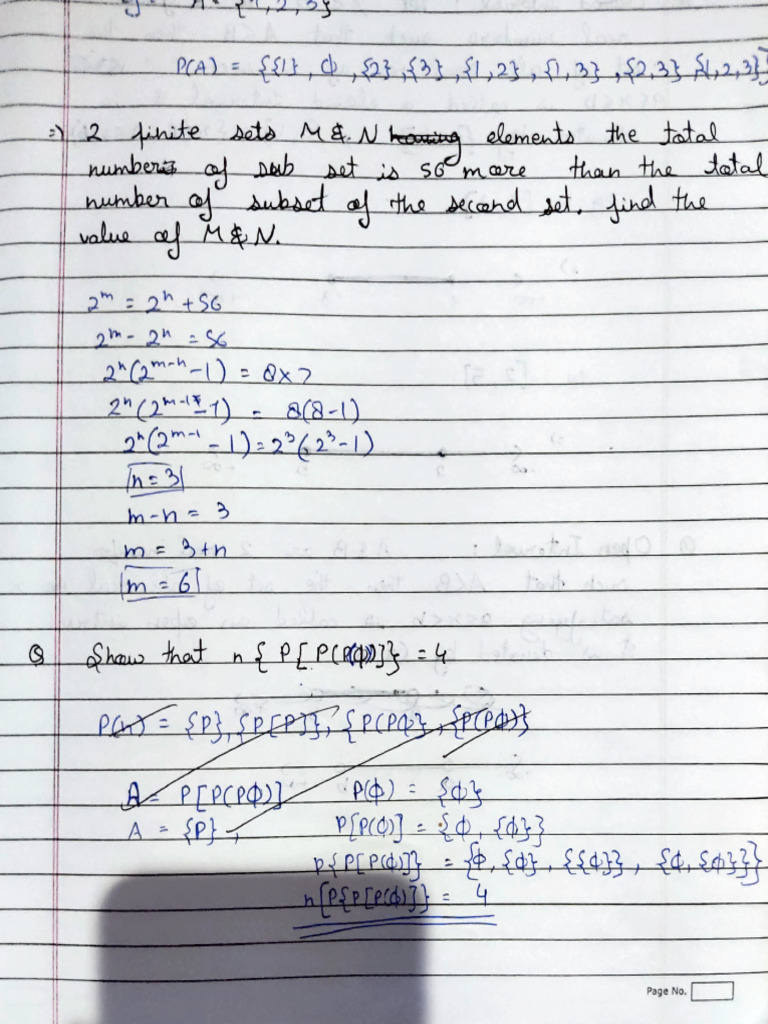 A = {1, 2, 3}
P(A) = {{1}, ϕ, {2}, {3}, {1, 2}, {1, 3}, {2, 3}, {1, 2, 3}}
=) 2 finite sets M & N having elements the total
number of sub set is 56 more than the total
number of subset of the second set. find the
value of M & N.
2^m = 2^n + 56
2^m - 2^n = 56
2^n (2^{m-n} - 1) = 8 x 7
2^n (2^{m-1} - 1) = 8(8-1)
2^n (2^{m-1} - 1) = 2^3 (2^3 - 1)
n = 3
m-n = 3
m = 3+n
m = 6
Q Show that n { P [ P(P(ϕ))]} = 4
P(n) = {P}, {P[P]}, {P(Pϕ}, {P(Pϕ)}
A = P[P(Pϕ)] P(ϕ) = {ϕ}
A = {P}, P[P(ϕ)] = {ϕ, {ϕ}}
P{P[P(ϕ)]} = {ϕ, {ϕ}, {{ϕ}}, {ϕ, {ϕ}}}
n[P{P[P(ϕ)]}} = 4
Page No.